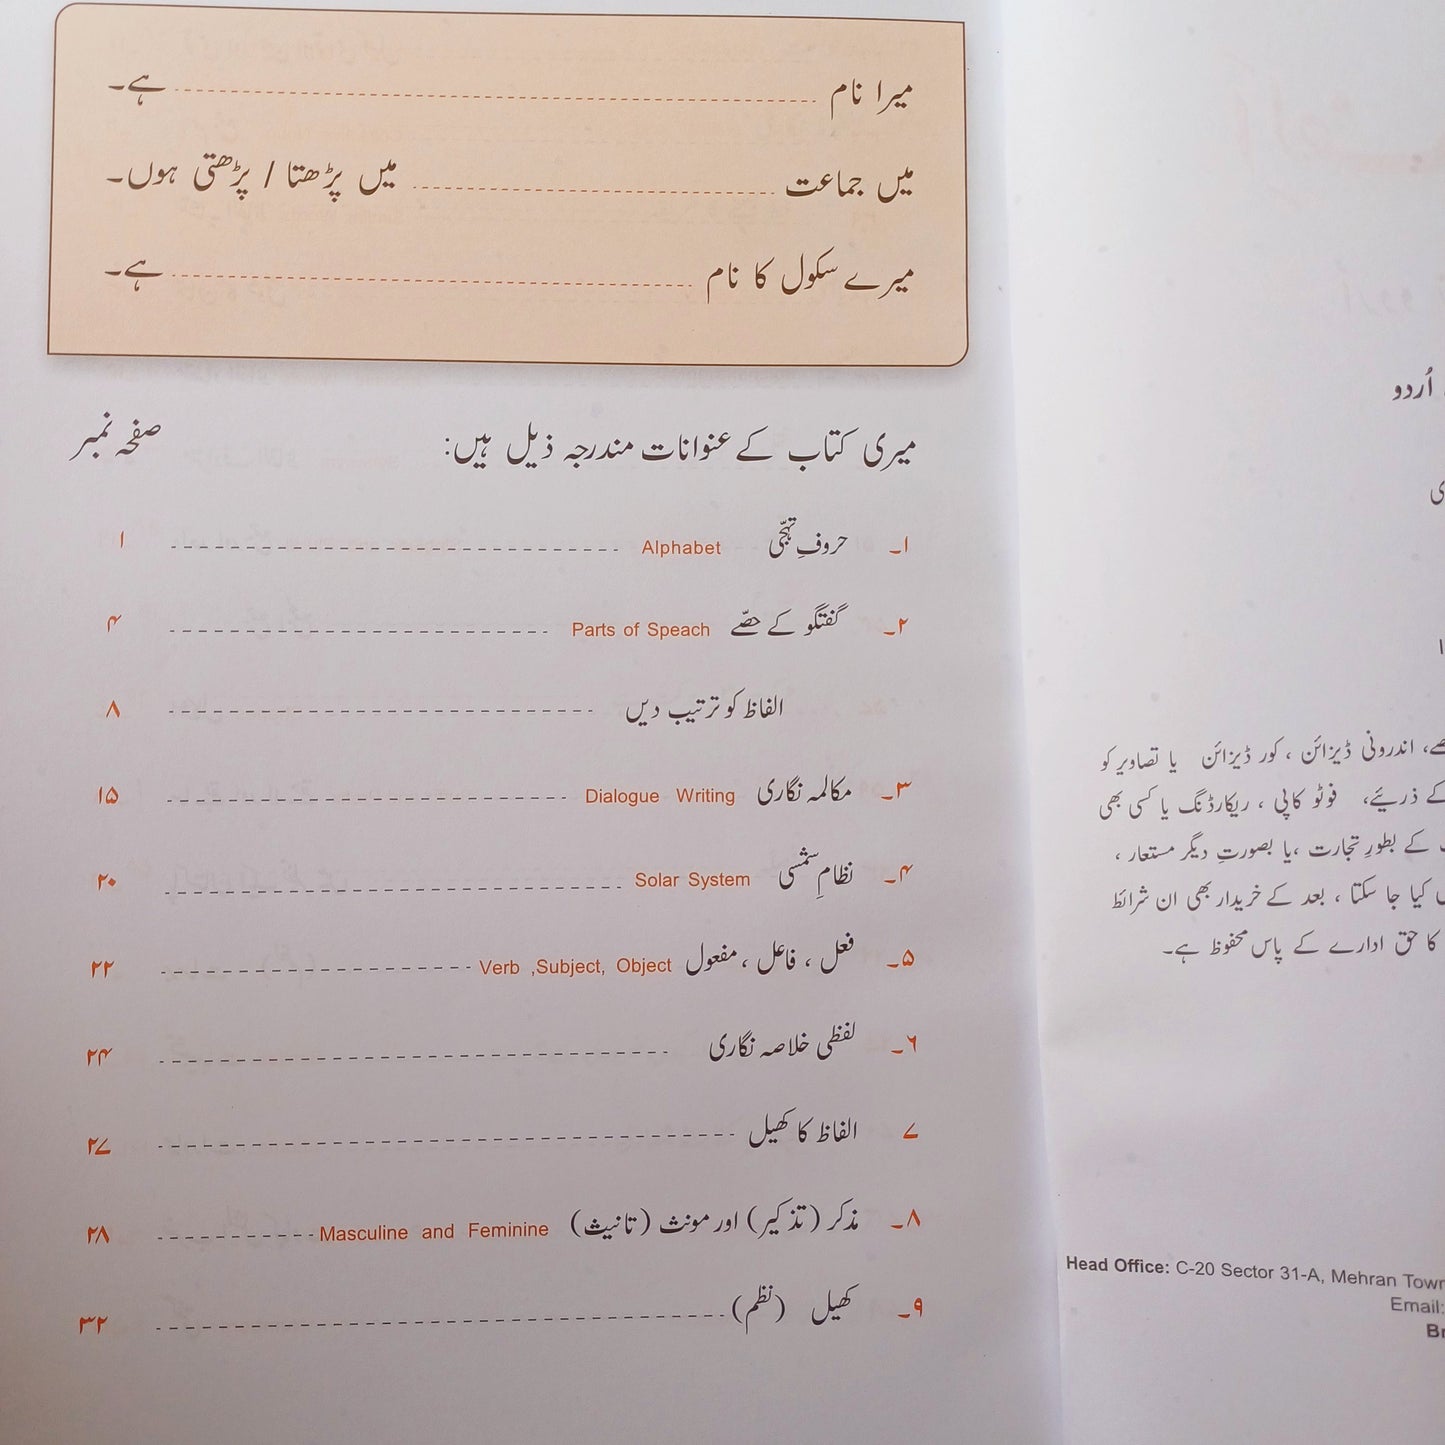 میرا نام ............ ہے۔
میں جماعت ............ میں پڑھتا / پڑھتی ہوں۔
میرے سکول کا نام ............ ہے۔
میری کتاب کے عنوانات مندرجہ ذیل ہیں: صفحہ نمبر
۱۔ حروفِ تہجّی Alphabet ۱
۲۔ گفتگو کے حصّے Parts of Speach ۴
الفاظ کو ترتیب دیں ۸
۳۔ مکالمہ نگاری Dialogue Writing ۱۵
۴۔ نظامِ شمسی Solar System ۲۰
۵۔ فعل ، فاعل ، مفعول Verb ,Subject, Object ۲۲
۶۔ لفظی خلاصہ نگاری ۲۴
۷ الفاظ کا کھیل ۲۷
۸۔ مذکر (تذکیر) اور مونث (تانیث) Masculine and Feminine ۲۸
۹۔ کھیل (نظم) ۳۲
اُردو
، اندرونی ڈیزائن ، کور ڈیزائن یا تصاویر کو
کے ذریئے، فوٹو کاپی ، ریکارڈنگ یا کسی بھی
کے بطورِ تجارت ،یا بصورتِ دیگر مستعار ،
کیا جا سکتا ، بعد کے خریدار بھی ان شرائط
کا حق ادارے کے پاس محفوظ ہے۔
Head Office: C-20 Sector 31-A, Mehran Town
Email: